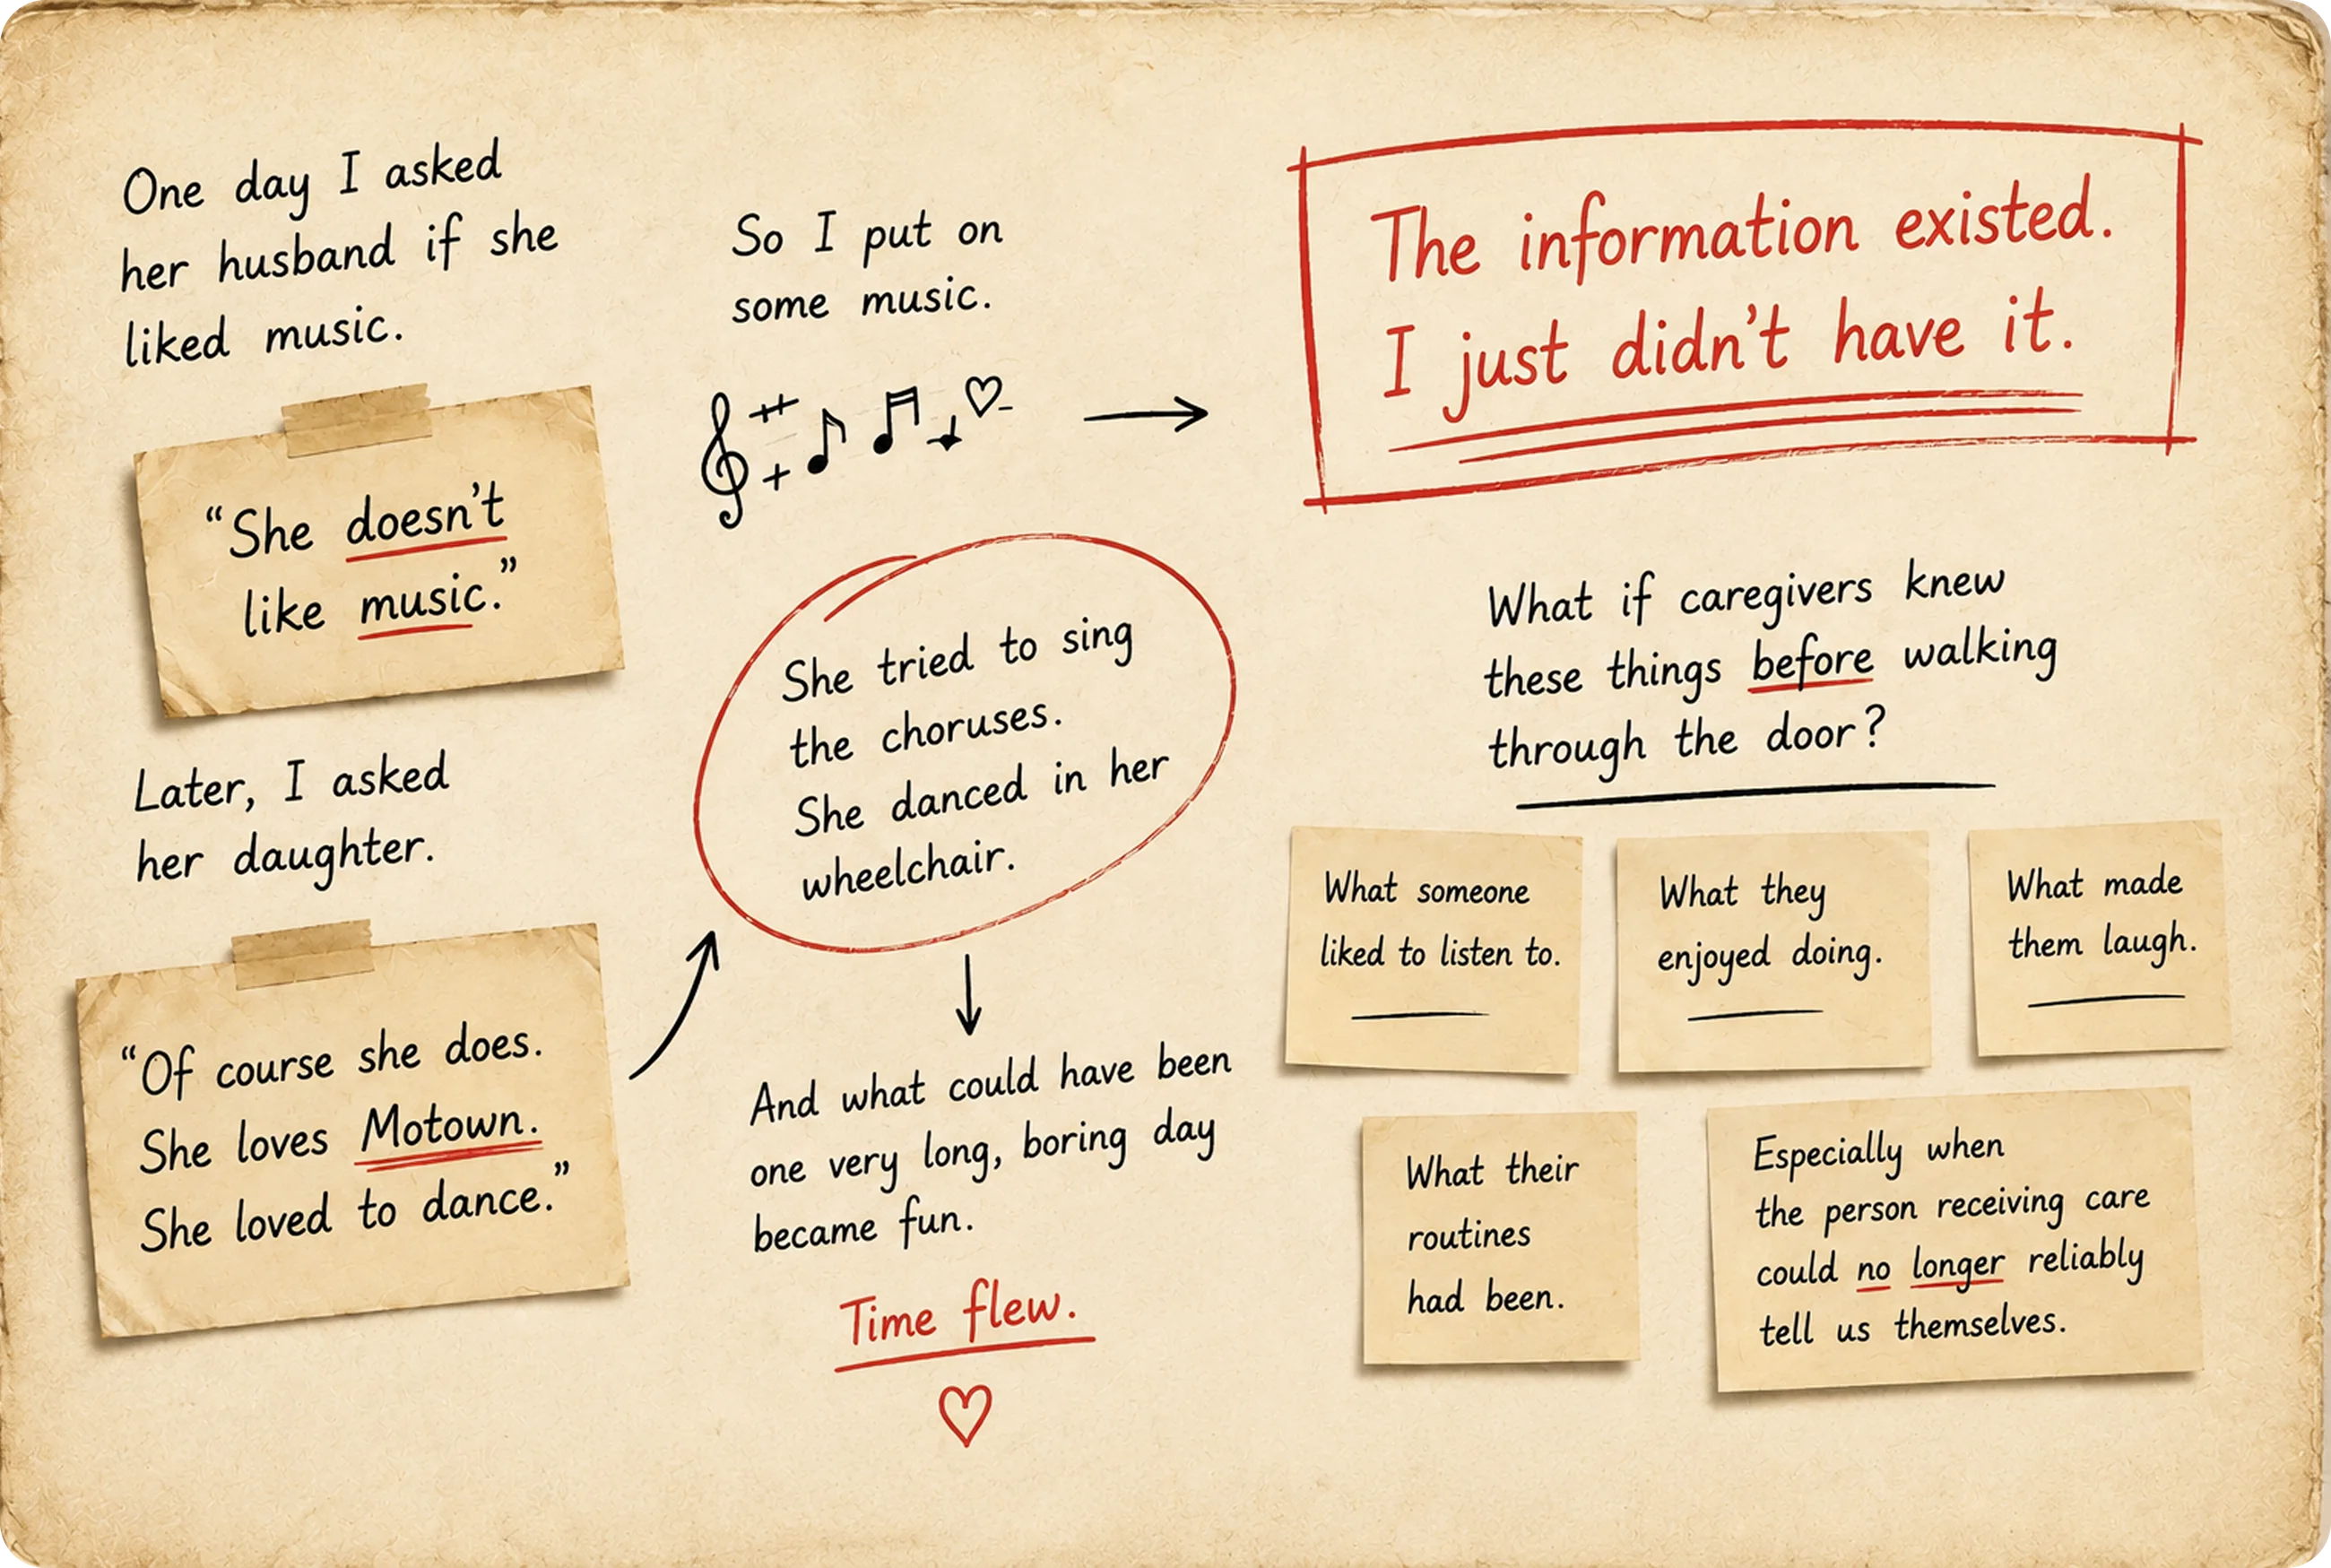 One day I asked
her husband if she
liked music.
“She doesn’t
like music.”
Later, I asked
her daughter.
“Of course she does.
She loves Motown.
She loved to dance.”
So I put on
some music.
She tried to sing
the choruses.
She danced in her
wheelchair.
And what could have been
one very long, boring day
became fun.
Time flew.
The information existed.
I just didn’t have it.
What if caregivers knew
these things before walking
through the door?
What someone
liked to listen to.
What they
enjoyed doing.
What made
them laugh.
What their
routines
had been.
Especially when
the person receiving care
could no longer reliably
tell us themselves.